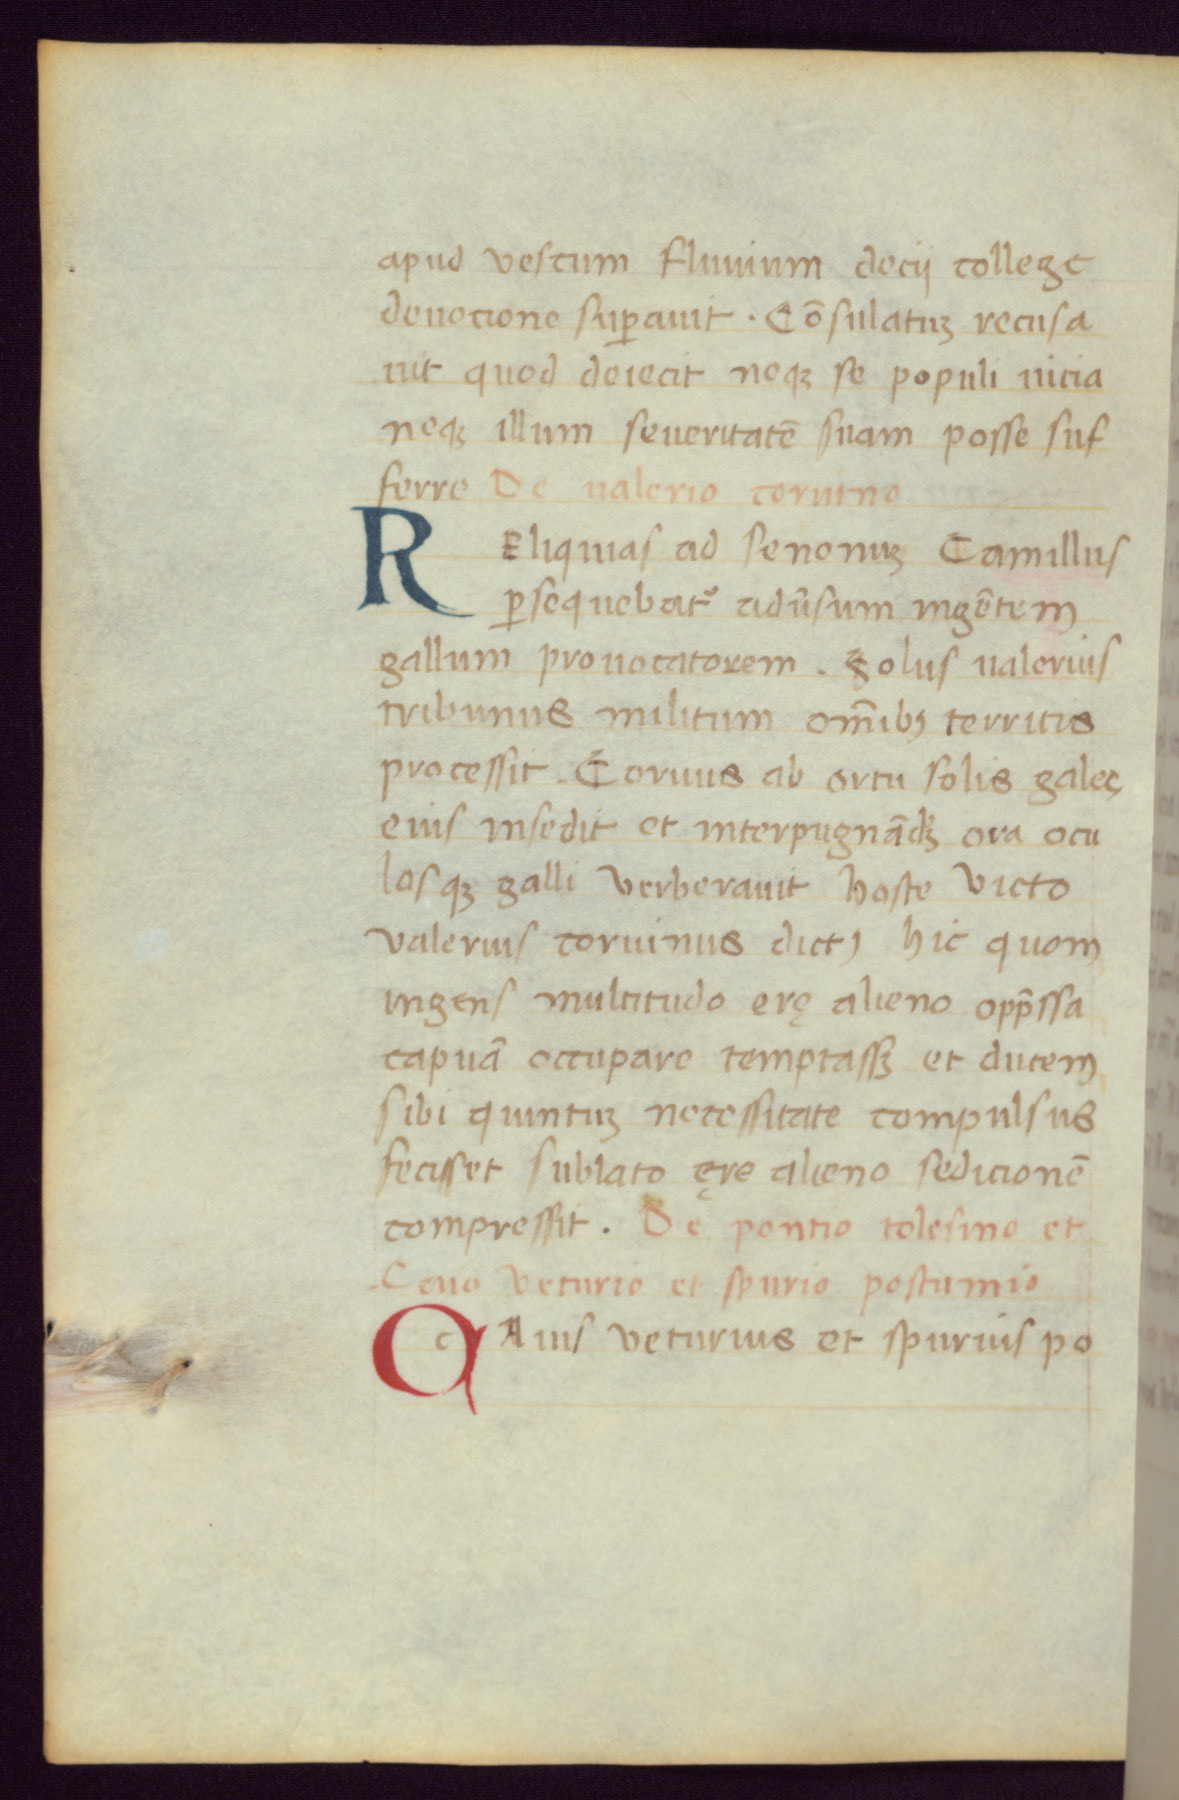 apud vescum fluuium decij collegę
deuocione suꝑauit · Cōsulatuꝫ recusa
uit quod deiecit neqꝫ se populi uicia
neqꝫ illum seueritatē suam posse suf
ferre De ualerio coruino
REliquias ad senonuꝫ Camillus
ꝑsequebatᷣ adũsum ingētem
gallum prouocatorem . Solus ualerius
tribunus militum om̄ibꝯ territis
processit . Coruus ab ortu solis galeę
eius insedit et interpugnādꝫ ora ocu
losqꝫ galli verberauit hoste victo
valerius coruinus dictꝯ hic quom
ingens multitudo erę alieno opp̄ssa
capuā occupare temptassꝫ et ducem
sibi quintuꝫ necessitate compulsus
fecisset sublato ęre alieno sedicionē
compressit . De pontio telesino et
Caio veturio et spurio postumio
CAius veturius et spurius po